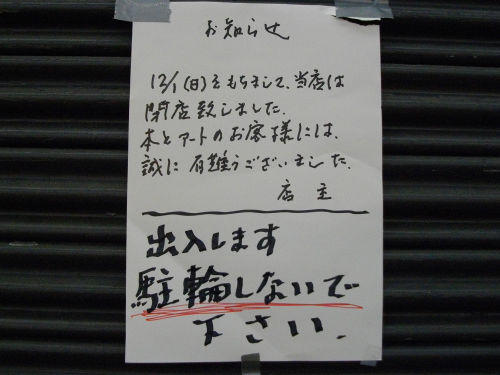 お知らせ
12/1(日)をもちまして、当店は
閉店致しました.
本とアートのお客様には、
誠に有難うございました.
店主
出入します
駐輪しないで
下さい.